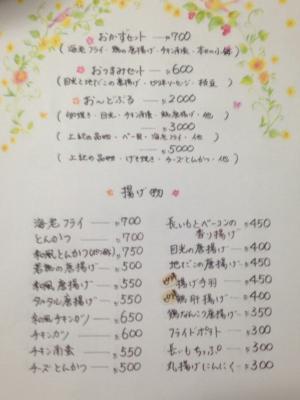 おかずセット ― ¥700
(海老フライ・鶏の唐揚げ・チキン南蛮・本日の小鉢)
おつまみセット ― ¥600
(目光と地だこの唐揚げ・ソーセージ・枝豆)
おーどぶる ― ¥2000
(卵焼き・目光・チキン南蛮・鶏唐揚げ・他)
¥3000
(上記の品物・海老フライ・他)
¥5000
(上記の品物・チーズとんかつ・他)
揚げ物
海老フライ ― ¥700
とんかつ ― ¥700
和風とんかつ ¥750
若鶏の唐揚げ ― ¥500
和風唐揚げ ― ¥550
タルタル唐揚げ ― ¥550
和風チキンカツ ― ¥650
チキンカツ ― ¥600
チキン南蛮 ― ¥550
チーズとんかつ ― ¥550
長いもとベーコンの
香り揚げ ― ¥450
目光の唐揚げ ― ¥400
地だこの唐揚げ ― ¥450
揚げ手羽 ― ¥450
鶏肝揚げ ― ¥400
鶏なんこつ唐揚げ ― ¥450
フライドポテト ― ¥300
長いもちっぷ ― ¥300
丸揚げにんにく ― ¥300